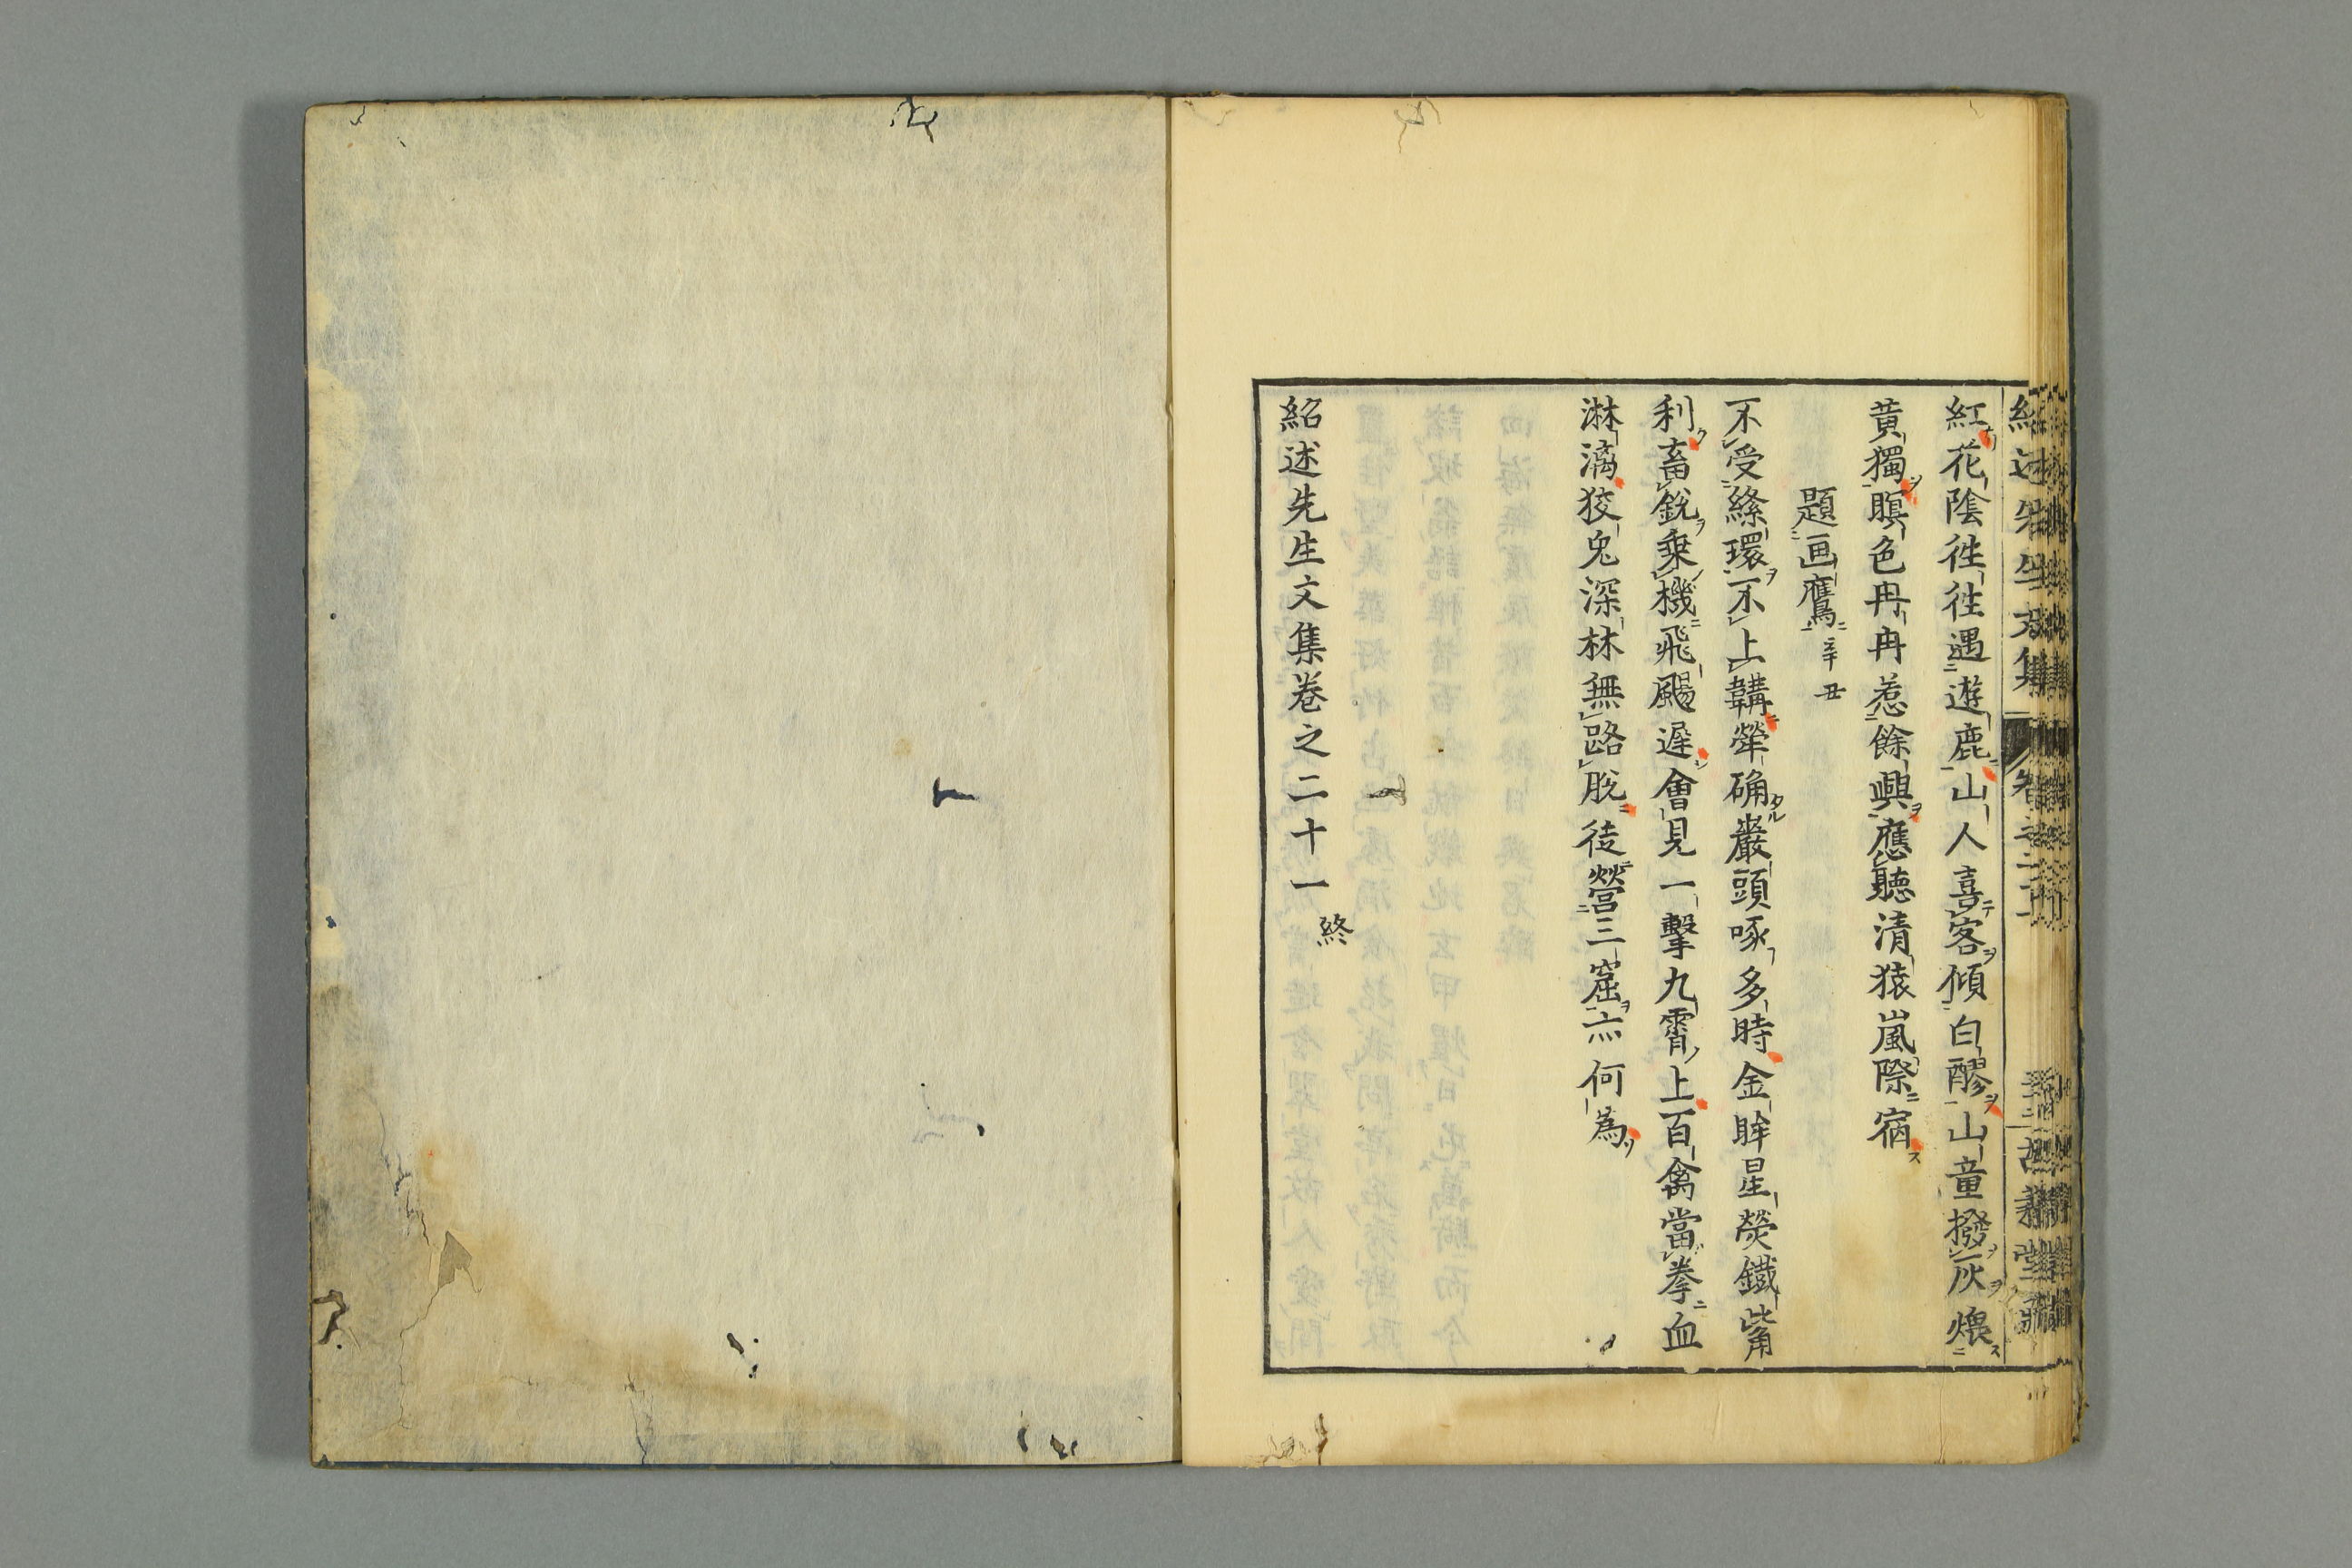 紅花陰徃徃遇遊鹿山人喜客傾白醪山童撥灰煨
黄獨瞑色冉冉惹餘興應聽清猿嵐際宿
題画鷹辛丑
不受絛環不上韝犖确巖頭啄多時金眸星熒鐵觜
利畜銳乗機飛颺遲會見一擊九霄上百禽當拳血
淋漓狡兔深林無路脫徒營三窟亦何為
紹述先生文集卷之二十一終